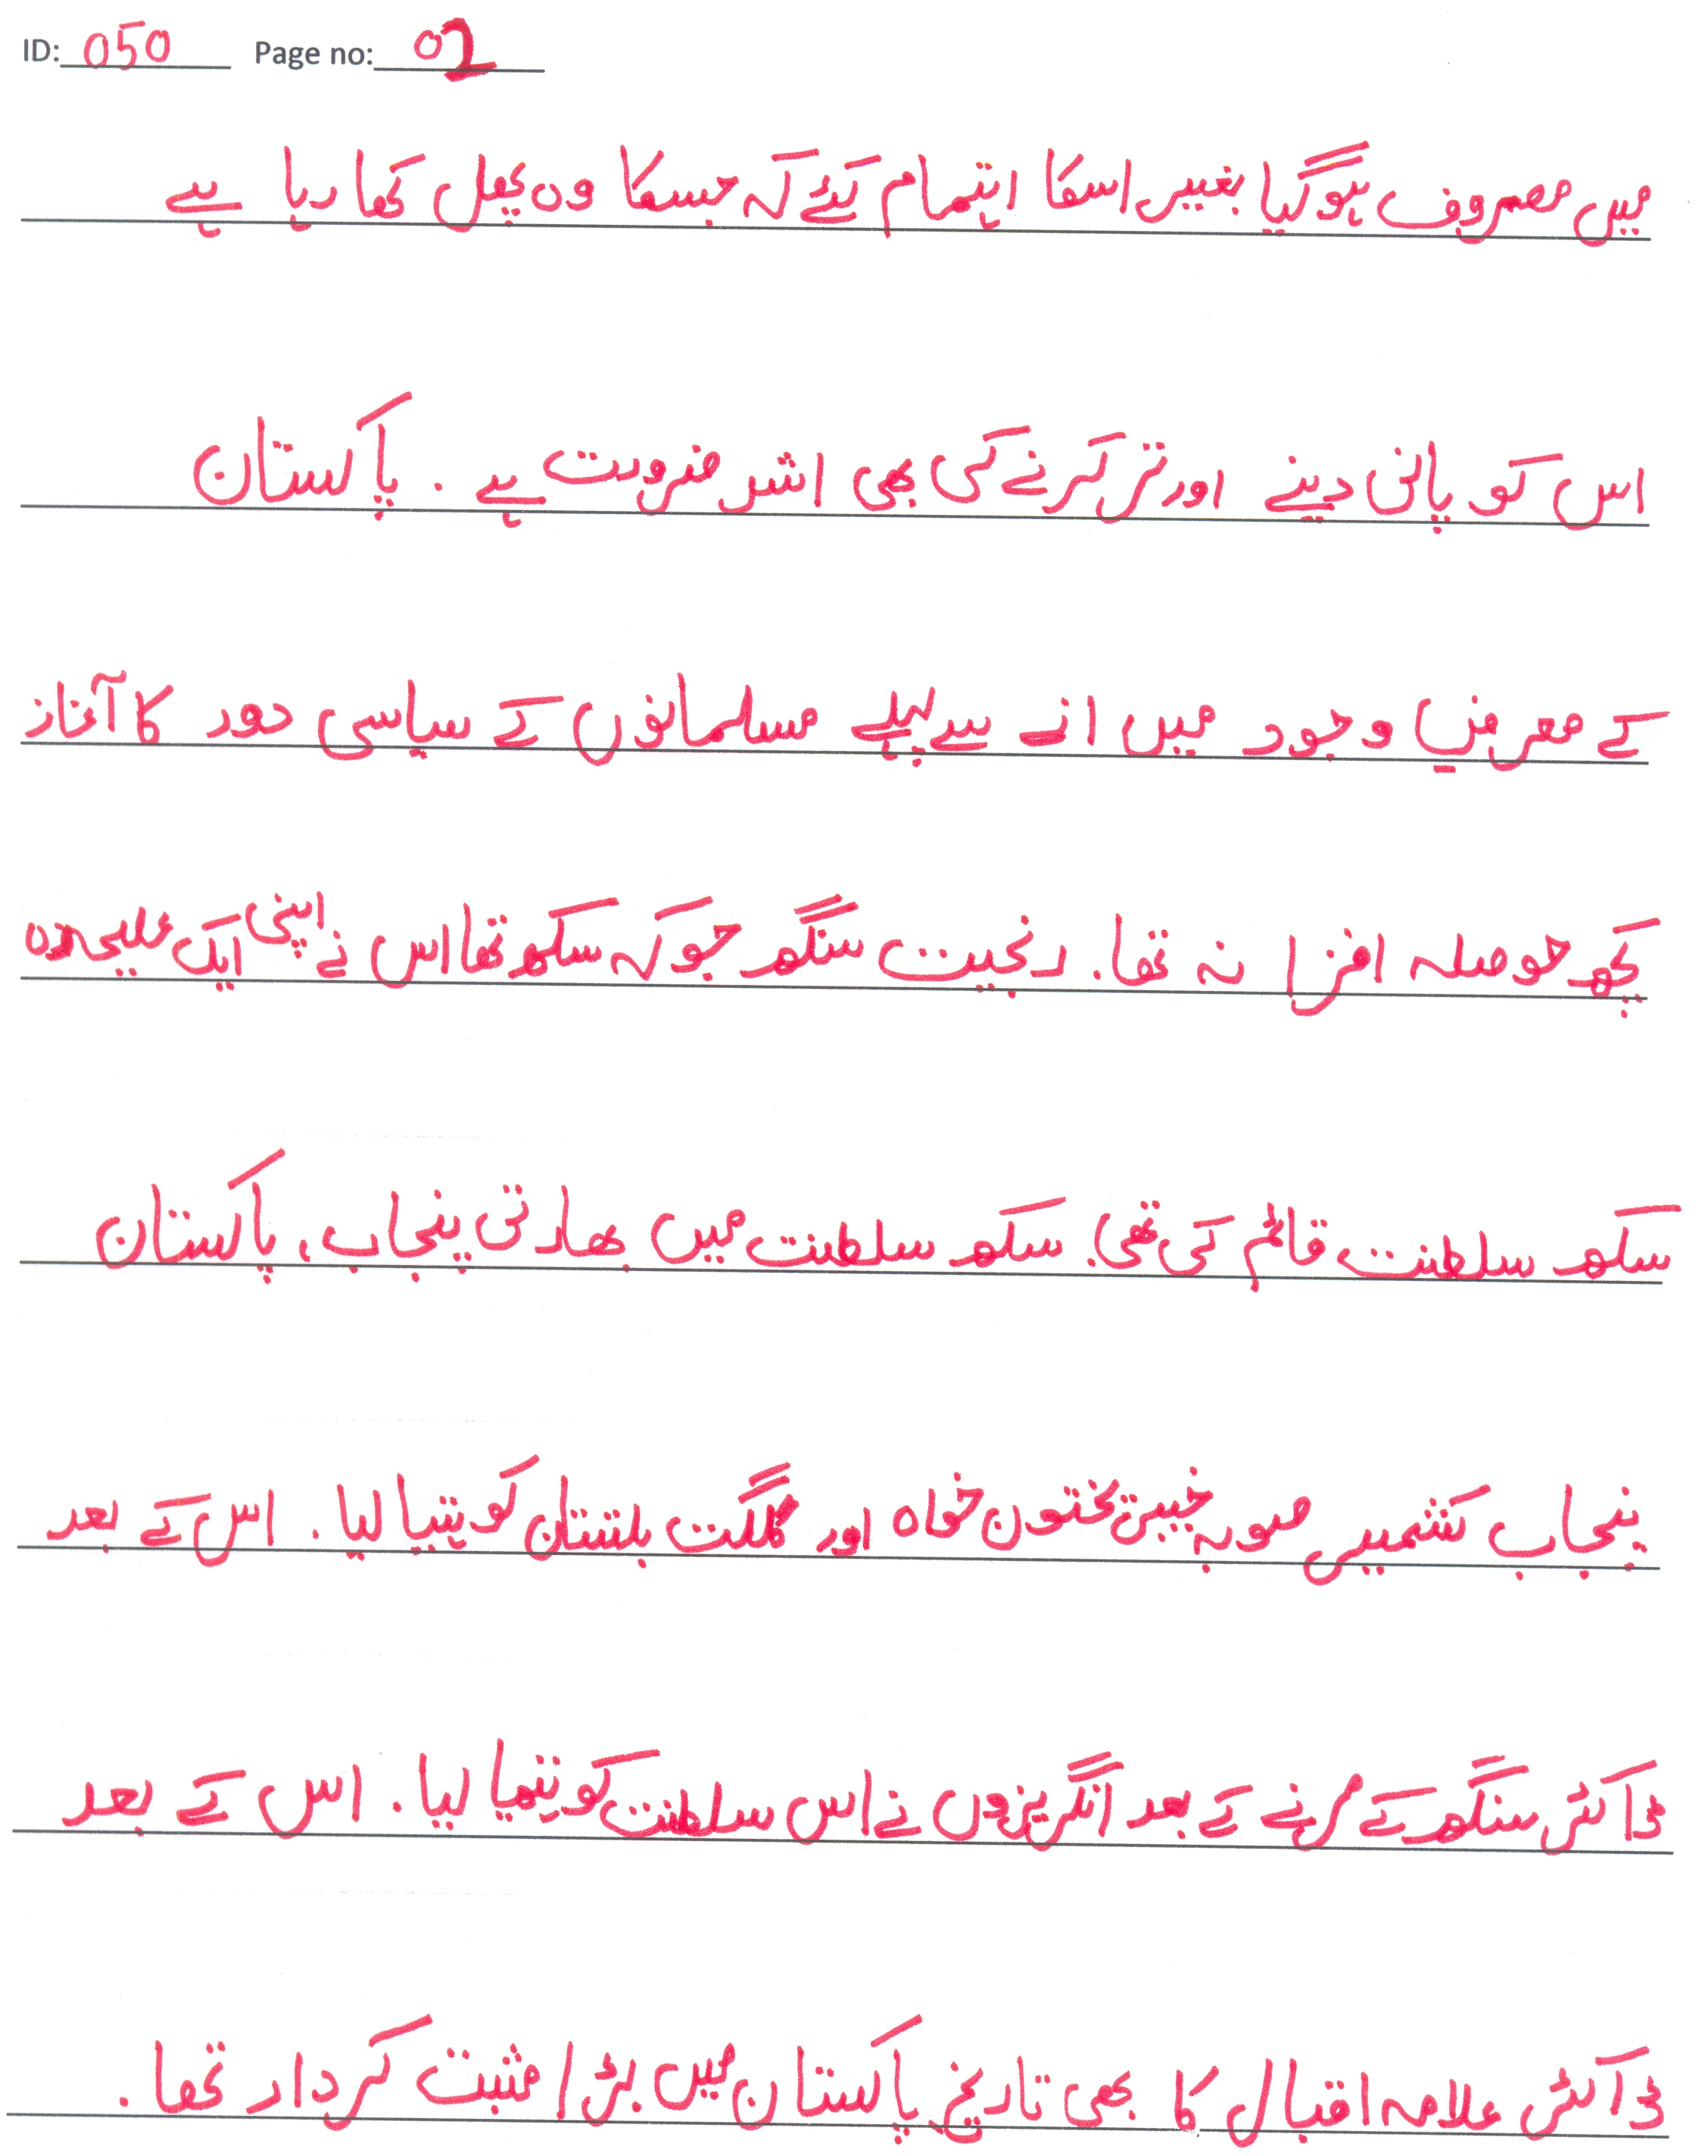 ID: 050 Page no: 02
میں مصروف ہوگیا بغیر اسکا اہتمام کئے کہ جسکا وہ پھل کھا رہا ہے
اس کو پانی دینے اور تر کرنے کی بھی اشر ضروت ہے ۔ پاکستان
کے معرضِ وجود میں انے سے پہلے مسلمانوں کے سیاسی دور کا آغاز
کچھ حوصلہ افزا نہ تھا۔ رنجیت سنگھ جو کہ سکھ تھا اس نے اپنی ایک علیحدہ
سکھ سلطنت قائم کی تھی۔ سکھ سلطنت میں بھارتی پنجاب، پاکستان
پنجاب کشمیر صوبہ خیبر پختون خواہ اور گلگت بلتستان کو ہتیا لیا ۔ اس کے بعد
ڈاکٹر سنگھ کے مرنے کے بعد انگریزوں نے اس سلطنت کو ہتھیا لیا ۔ اس کے بعد
ڈاکٹر علامہ اقبال کا بھی تاریخِ پاکستان میں بڑا مثبت کردار تھا ۔